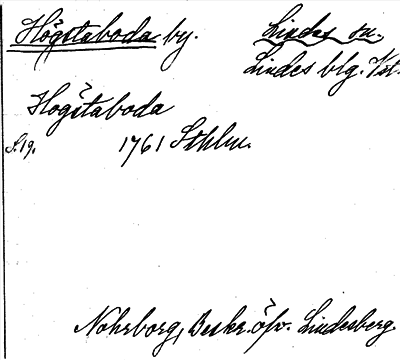 Högstaboda by. Lindes sn.
Lindes blg. Vstm.
Hogstaboda
S.19. 1761 Sthlm.
Nohrborg, Beskr. öfv. Lindesberg.